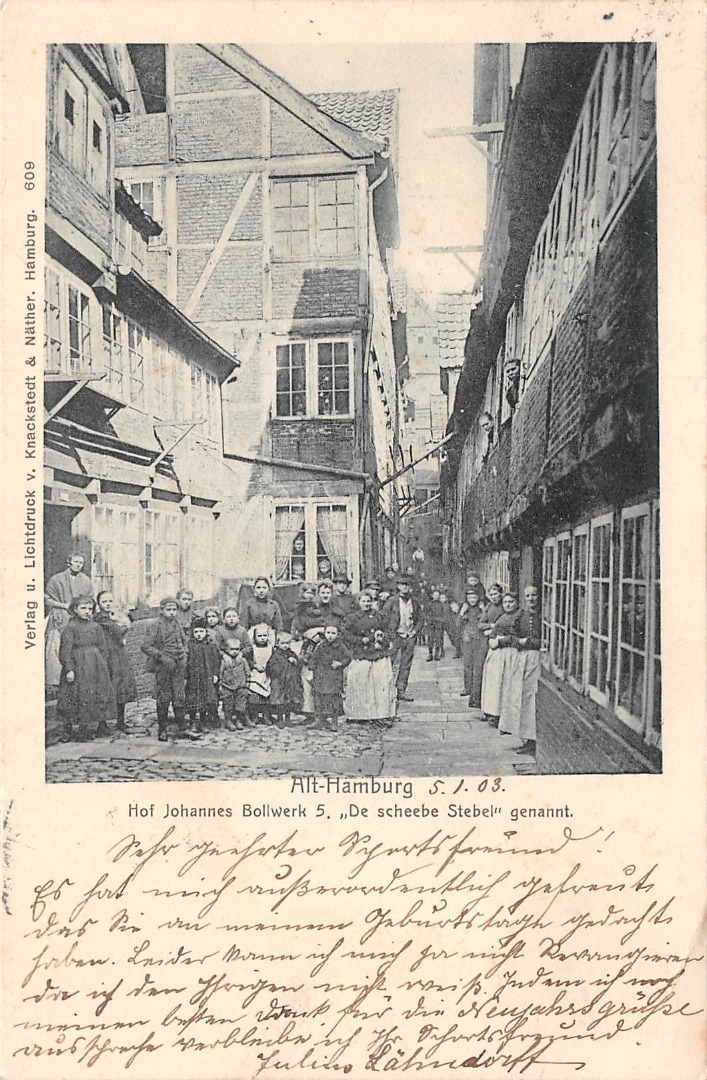 Verlag u. Lichtdruck v. Knackstedt & Näther. Hamburg. 609
Alt-Hamburg 5.1.03.
Hof Johannes Bollwerk 5. „De scheebe Stebel" genannt.
Sehr geehrter Sportsfreund!
Es hat mich außerordentlich gefreut,
das Sie an meinem Geburtstage gedacht
haben. Leider kann ich mich ja nicht Revangieren
da ich den Ihrigen nicht weiß. Indem ich noch
meinen besten Dank für die Neujahrsgrüße
ausspreche verbleibe ich Ihr Sportsfreund.
Julius Lähndorff